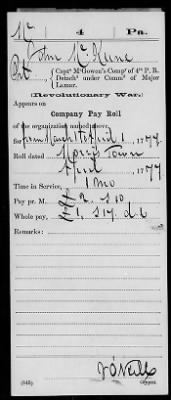 Mc 4 Pa.
John McKune
Pvt { Capt Mc Gowen's Comp'y of 4th P. R.
Detach't under Comm'd of Major
Lamar.
(Revolutionary War.)
Appears on
Company Pay Roll
of the organization named above,
for from March 1 to April 1, 1777
Roll dated Morris Town
April 1777
Time in Service, 1 Mo
Pay pr. M.
Whole pay,
Remarks:
J O'Neill
(545) Copyist.